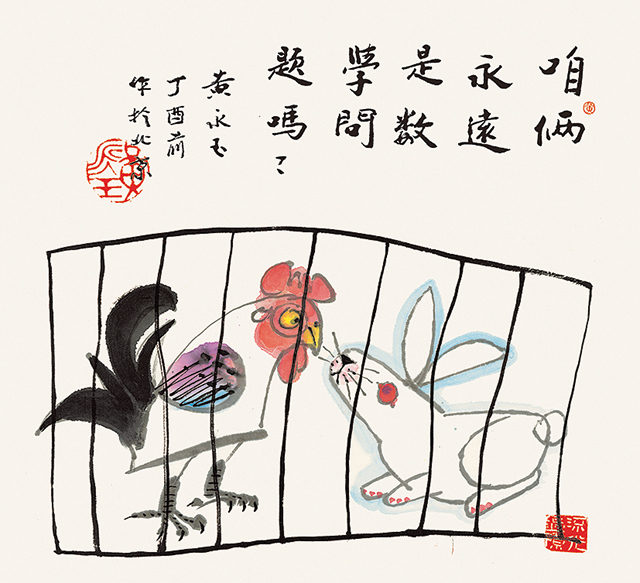 咱俩
永遠
是数
學問
題嗎
黄永玉
丁酉前
作於北京